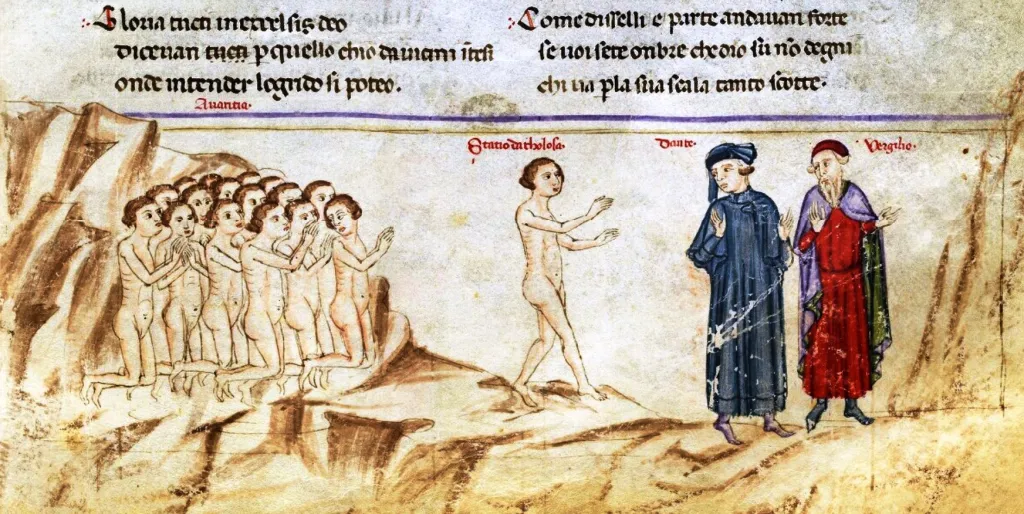 Gloria tucti in excelsis deo
dicevan tucti p quello chio da vicini itesi
onde intender logrido si poteo.
Come disselli e parte andavan forte
se voi sete onbre che dio su no degni
chi va p la sua scala tanto scorte.
Avaritia.
Statio da tholosa.
Dante.
Vergilio.